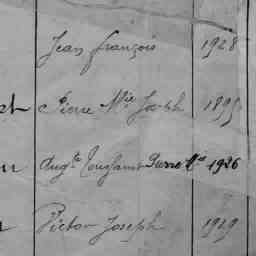 Jean françois 1928
Pierre Mie Joseph 1895
Augte Pierre Mie 1926
Victor Joseph 1929